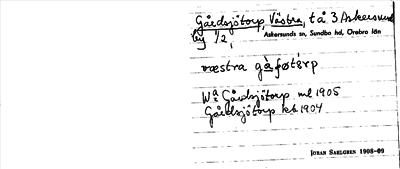 Gårdsjötorp, Västra, t å 3 Askersunds
by 1/2,
Askersunds sn, Sundbo hd, Örebro län
væstra gå̀føtǝrp
Wa Gårdsjötorp ml 1905
Gårdsjötorp kb 1904
JÖRAN SAHLGREN 1908-09